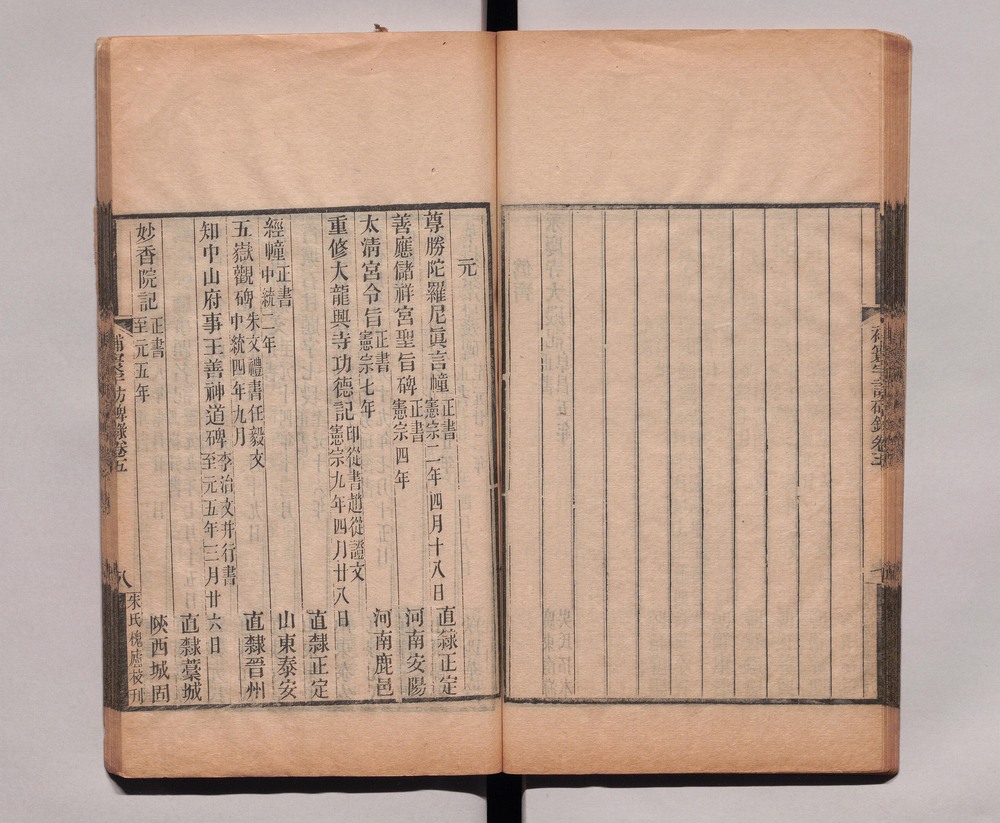 元
尊勝陀羅尼眞言幢 正書 憲宗二年四月十八日 直隸正定
善應儲祥宮聖旨碑 正書 憲宗四年 河南安陽
太清宮令旨 正書 憲宗七年 河南鹿邑
重修大龍興寺功德記 印從書趙從證文 憲宗九年四月廿八日 直隸正定
經幢 正書 中統二年 山東泰安
五嶽觀碑 朱文禮書任毅文 中統四年九月 直隸晉州
知中山府事王善神道碑 李治文并行書 至元五年三月廿六日 直隸藁城
妙香院記 正書 至元五年 陝西城固
補寰宇訪碑錄卷五
八
朱氏槐廬校刊